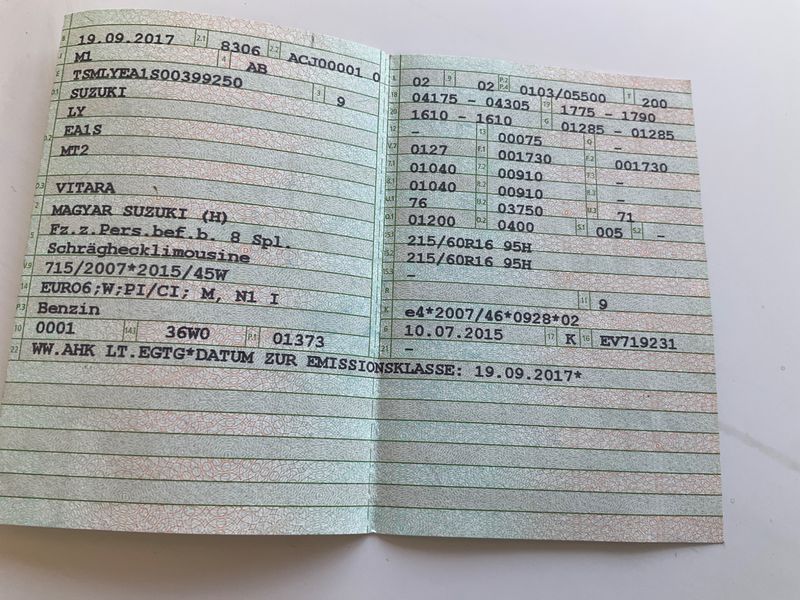 B 19.09.2017 2.1 8306 2.2 ACJ00001 0
J M1 4 AB
E TSMLYEA1S00399250 3 9
D.1 SUZUKI
LY
D.2 EA1S
MT2
D.3 VITARA
2 MAGYAR SUZUKI (H)
5 Fz.z.Pers.bef.b. 8 Spl.
Schräghecklimousine
V.9 715/2007*2015/45W
14 EURO6;W;PI/CI; M, N1 I
P.3 Benzin
10 0001 14.1 36W0 P.1 01373
22 WW.AHK LT.EGTG*DATUM ZUR EMISSIONSKLASSE: 19.09.2017*
L 02 9 02 P.2 P.4 0103/05500 T 200
18 04175 - 04305 19 1775 - 1790
20 1610 - 1610 G 01285 - 01285
12 - 13 00075 Q -
V.7 0127 F.1 001730 F.2 001730
7.1 01040 7.2 00910 7.3 -
8.1 01040 8.2 00910 8.3 -
U.1 76 U.2 03750 U.3 71
O.1 01200 O.2 0400 S.1 005 S.2 -
15.1 215/60R16 95H
15.2 215/60R16 95H
15.3 -
R 11 9
K e4*2007/46*0928*02
6 10.07.2015 17 K 16 EV719231
21 -